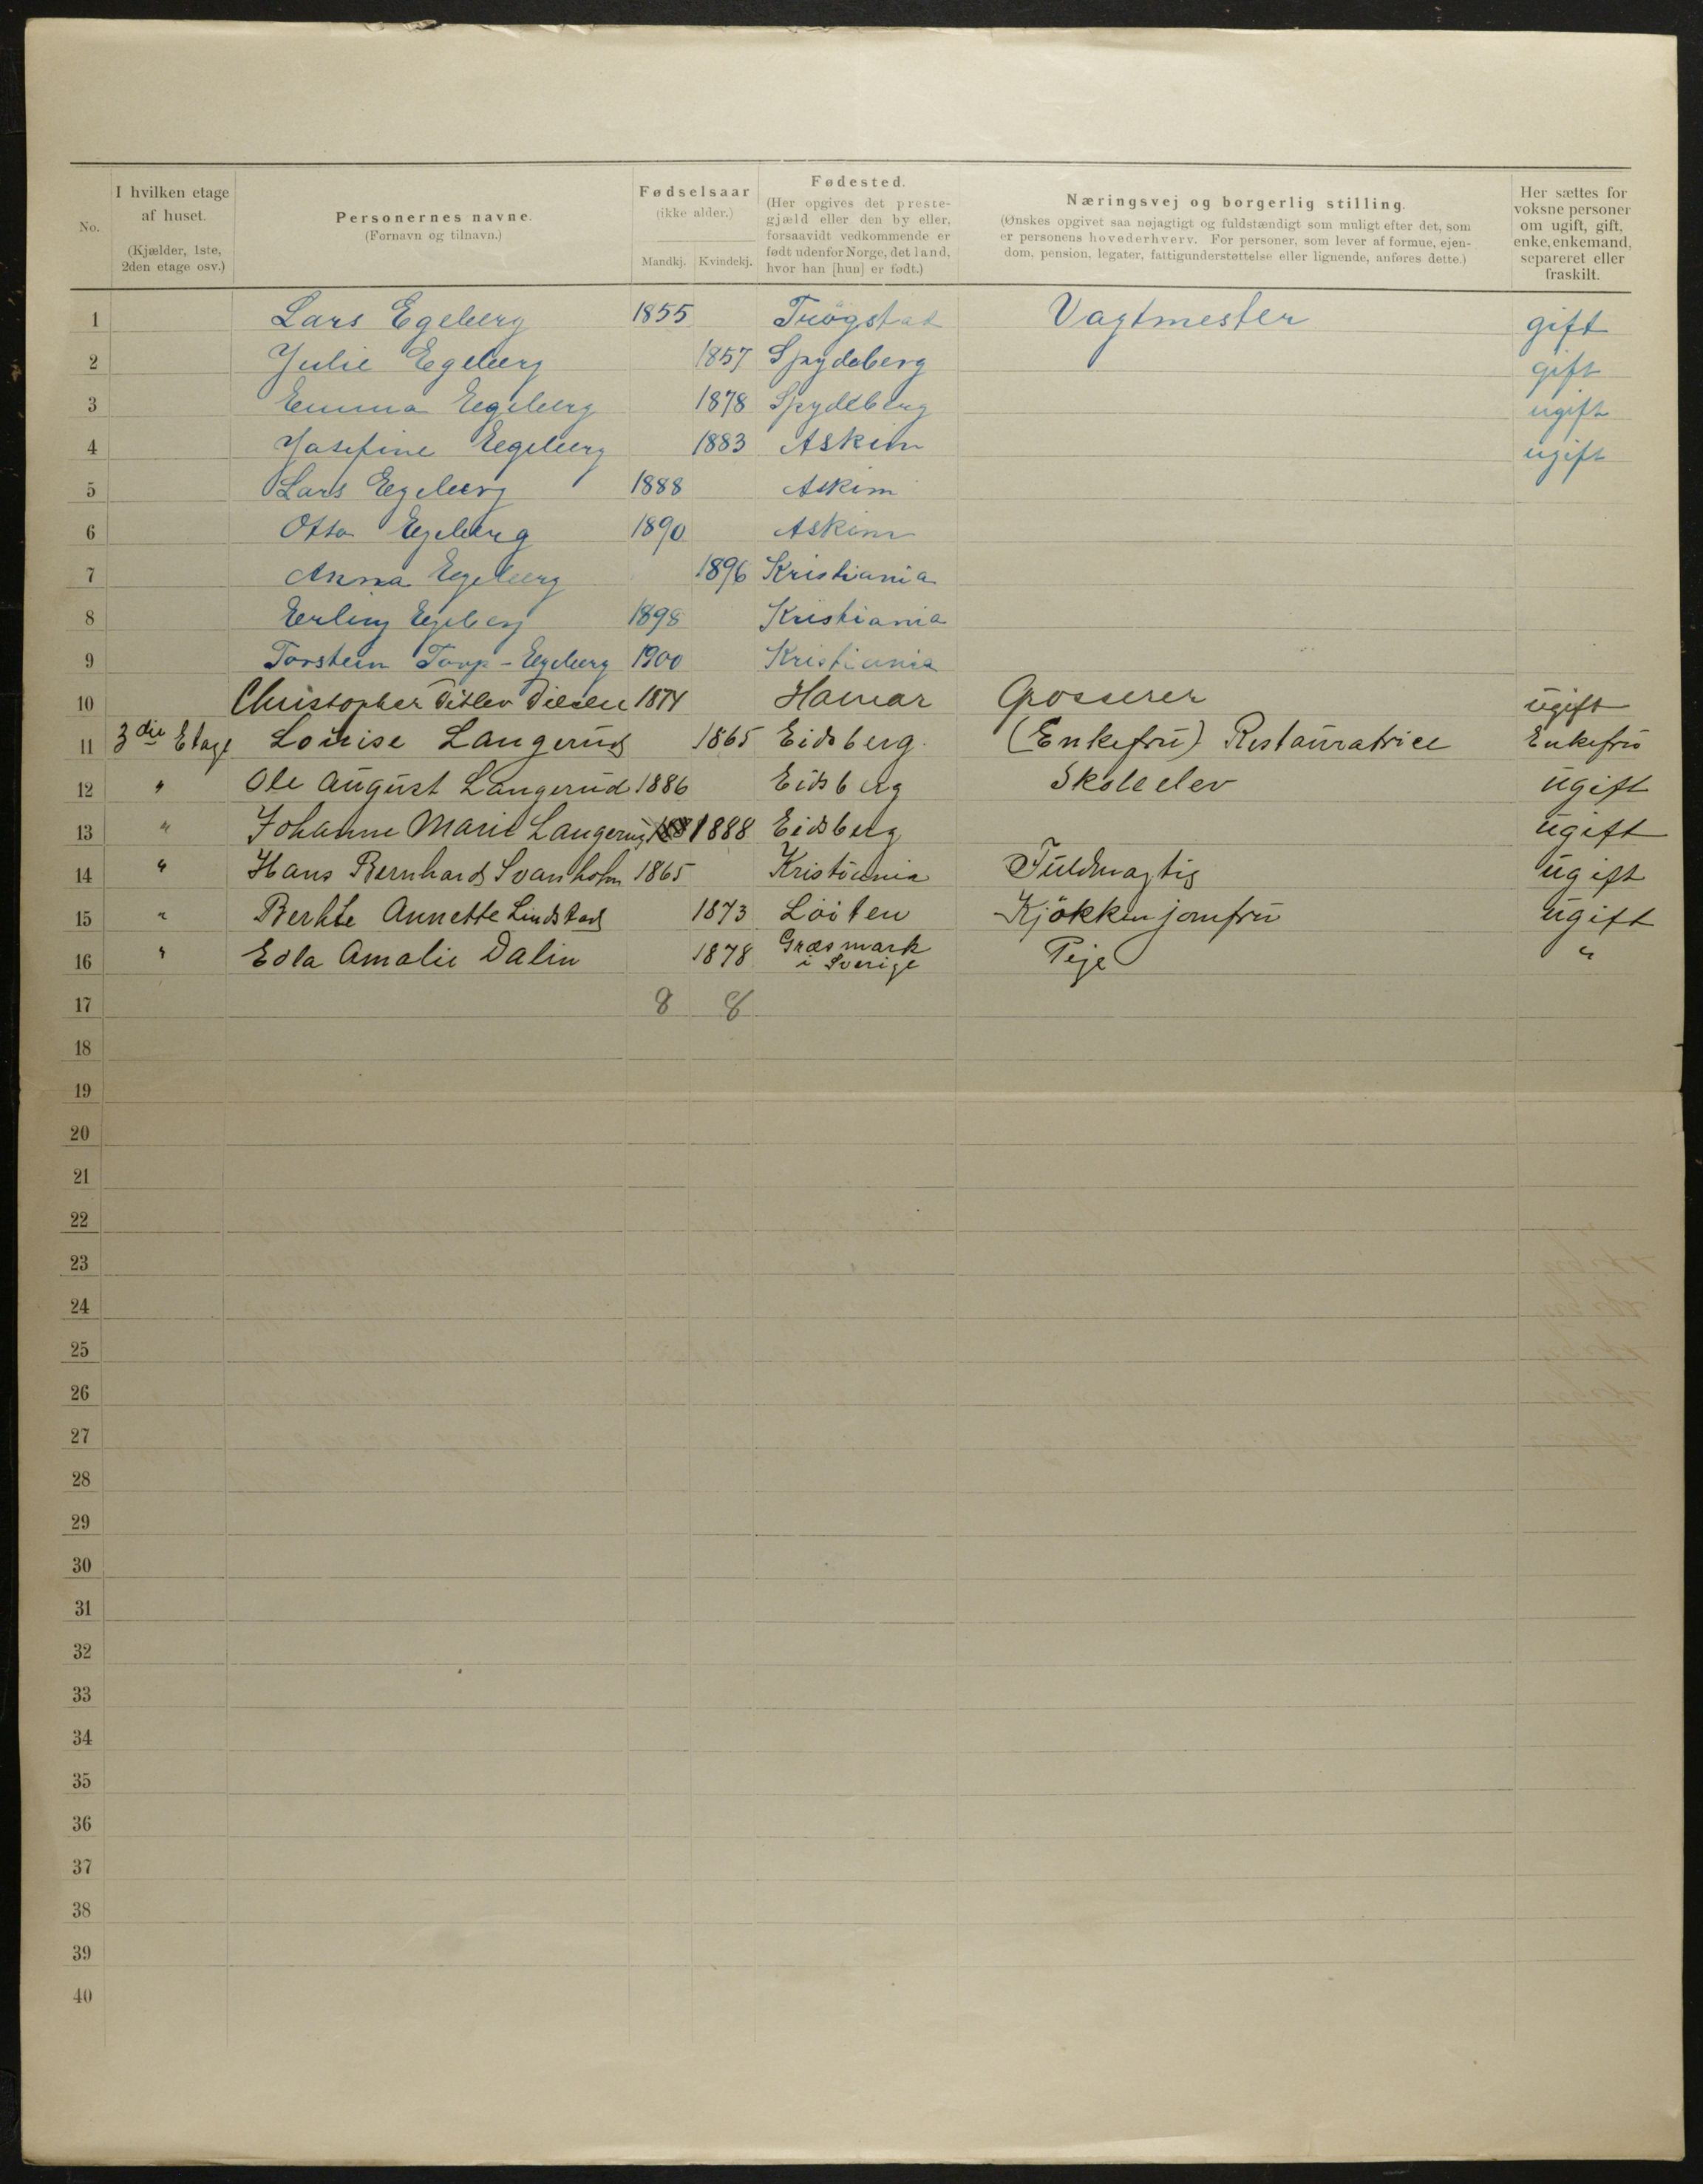 No.
I hvilken etage
af huset.
(Kjælder, 1ste,
2den etage osv.)
Personernes navne.
(Fornavn og tilnavn.)
Fødselsaar
(ikke alder.)
Mandkj. Kvindekj.
Fødested.
(Her opgives det preste-
gjæld eller den by eller,
forsaavidt vedkommende er
født udenfor Norge, det land,
hvor han [hun] er født.)
Næringsvej og borgerlig stilling.
(Ønskes opgivet saa nøjagtigt og fuldstændigt som muligt efter det, som
er personens hovederhverv. For personer, som lever af formue, ejen-
dom, pension, legater, fattigunderstøttelse eller lignende, anføres dette.)
Her sættes for
voksne personer
om ugift, gift,
enke, enkemand,
separeret eller
fraskilt.
1 Lars Egeberg 1855 Trögstad Vagtmester gift
2 Julie Egeberg 1857 Spydeberg gift
3 Emma Egeberg 1878 Spydeberg ugift
4 Josefine Egeberg 1883 Askim ugift
5 Lars Egeberg 1888 Askim
6 Otto Egeberg 1890 Askim
7 Anna Egeberg 1896 Kristiania
8 Erling Egeberg 1898 Kristiania
9 Torstein Torp-Egeberg 1900 Kristiania
10 Christopher Ditlev 1874 Hamar Grosserer ugift
11 3die Etage Louise Langerud 1865 Eidsberg. (Enkefru) Restauratrice Enkefru
12 " Ole August Langerud 1886 Eidsberg Skoleelev ugift
13 " Johanne Marie Langerud 1888 Eidsberg ugift
14 " Hans Bernhard Svanholm 1865 Kristiania Fuldmagtig ugift
15 " Berhte Annette Lindstad 1873 Löiten Kjökkenjomfru ugift
16 " Edla Amalie Dalin 1878 Græsmark i Sverige Pige "
17 8 8
18
19
20
21
22
23
24
25
26
27
28
29
30
31
32
33
34
35
36
37
38
39
40